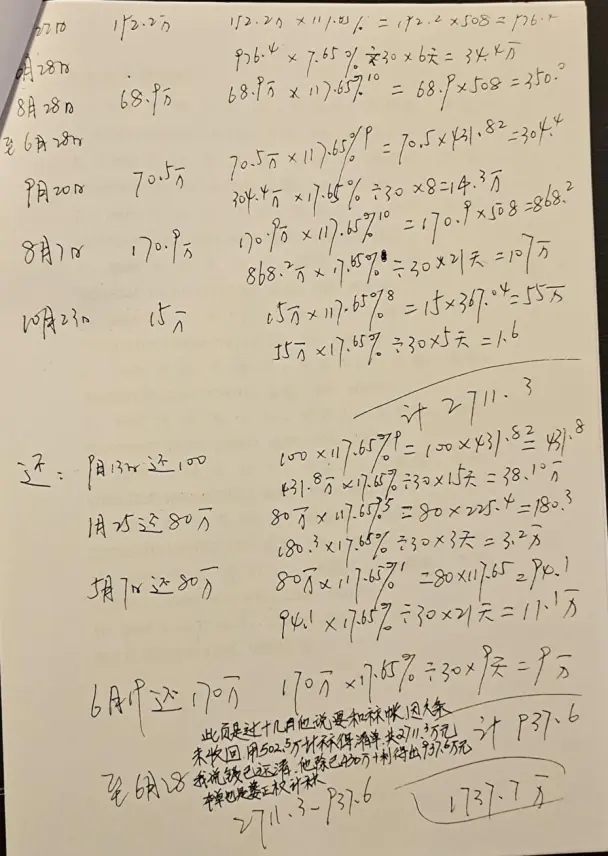 192.2万 192.2万×117.65% =192.2×508=976.4
月28日 976.4×7.65%÷30×6天=34.4万
8月28日 68.9万 68.9万×117.65%10 =68.9×508=350.0
至6月28日
9月20日 70.5万 70.5万×117.65%9=70.5×431.82=304.4
304.4万×17.65%÷30×8=14.3万
8月7日 170.9万 170.9万×117.65%10=170.9×508=868.2
868.2万×17.65%÷30×21天=107万
10月23日 15万 15万×117.65%8=15×367.04=55万
55万×17.65%÷30×5天=1.6
计 2711.3
还: 9月13日还100 100×117.65%9=100×431.82=431.8
431.8万×17.65%÷30×15天=38.10万
1月25还80万 80万×117.65%5=80×225.4=180.3
180.3×17.65%÷30×3天=3.2万
5月7日还80万 80万×117.65%1=80×117.65=94.1
94.1×17.65%÷30×21天=11.1万
6月19还170万 170万×17.65%÷30×9天=9万
计 937.6
此页是过十几月他说要和林帐因欠条
未收回用502.5万计林得清单共2711.3万元
我说钱已还清他除已430万+利得出937.6万元
至6月28
2711.3-937.6 1737.7万